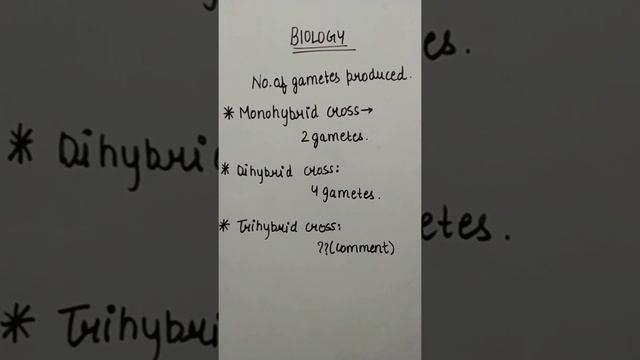 BIOLOGY
No. of gametes produced.
* Monohybrid cross→
2 gametes.
* Dihybrid cross:
4 gametes.
* Trihybrid cross:
??(comment)